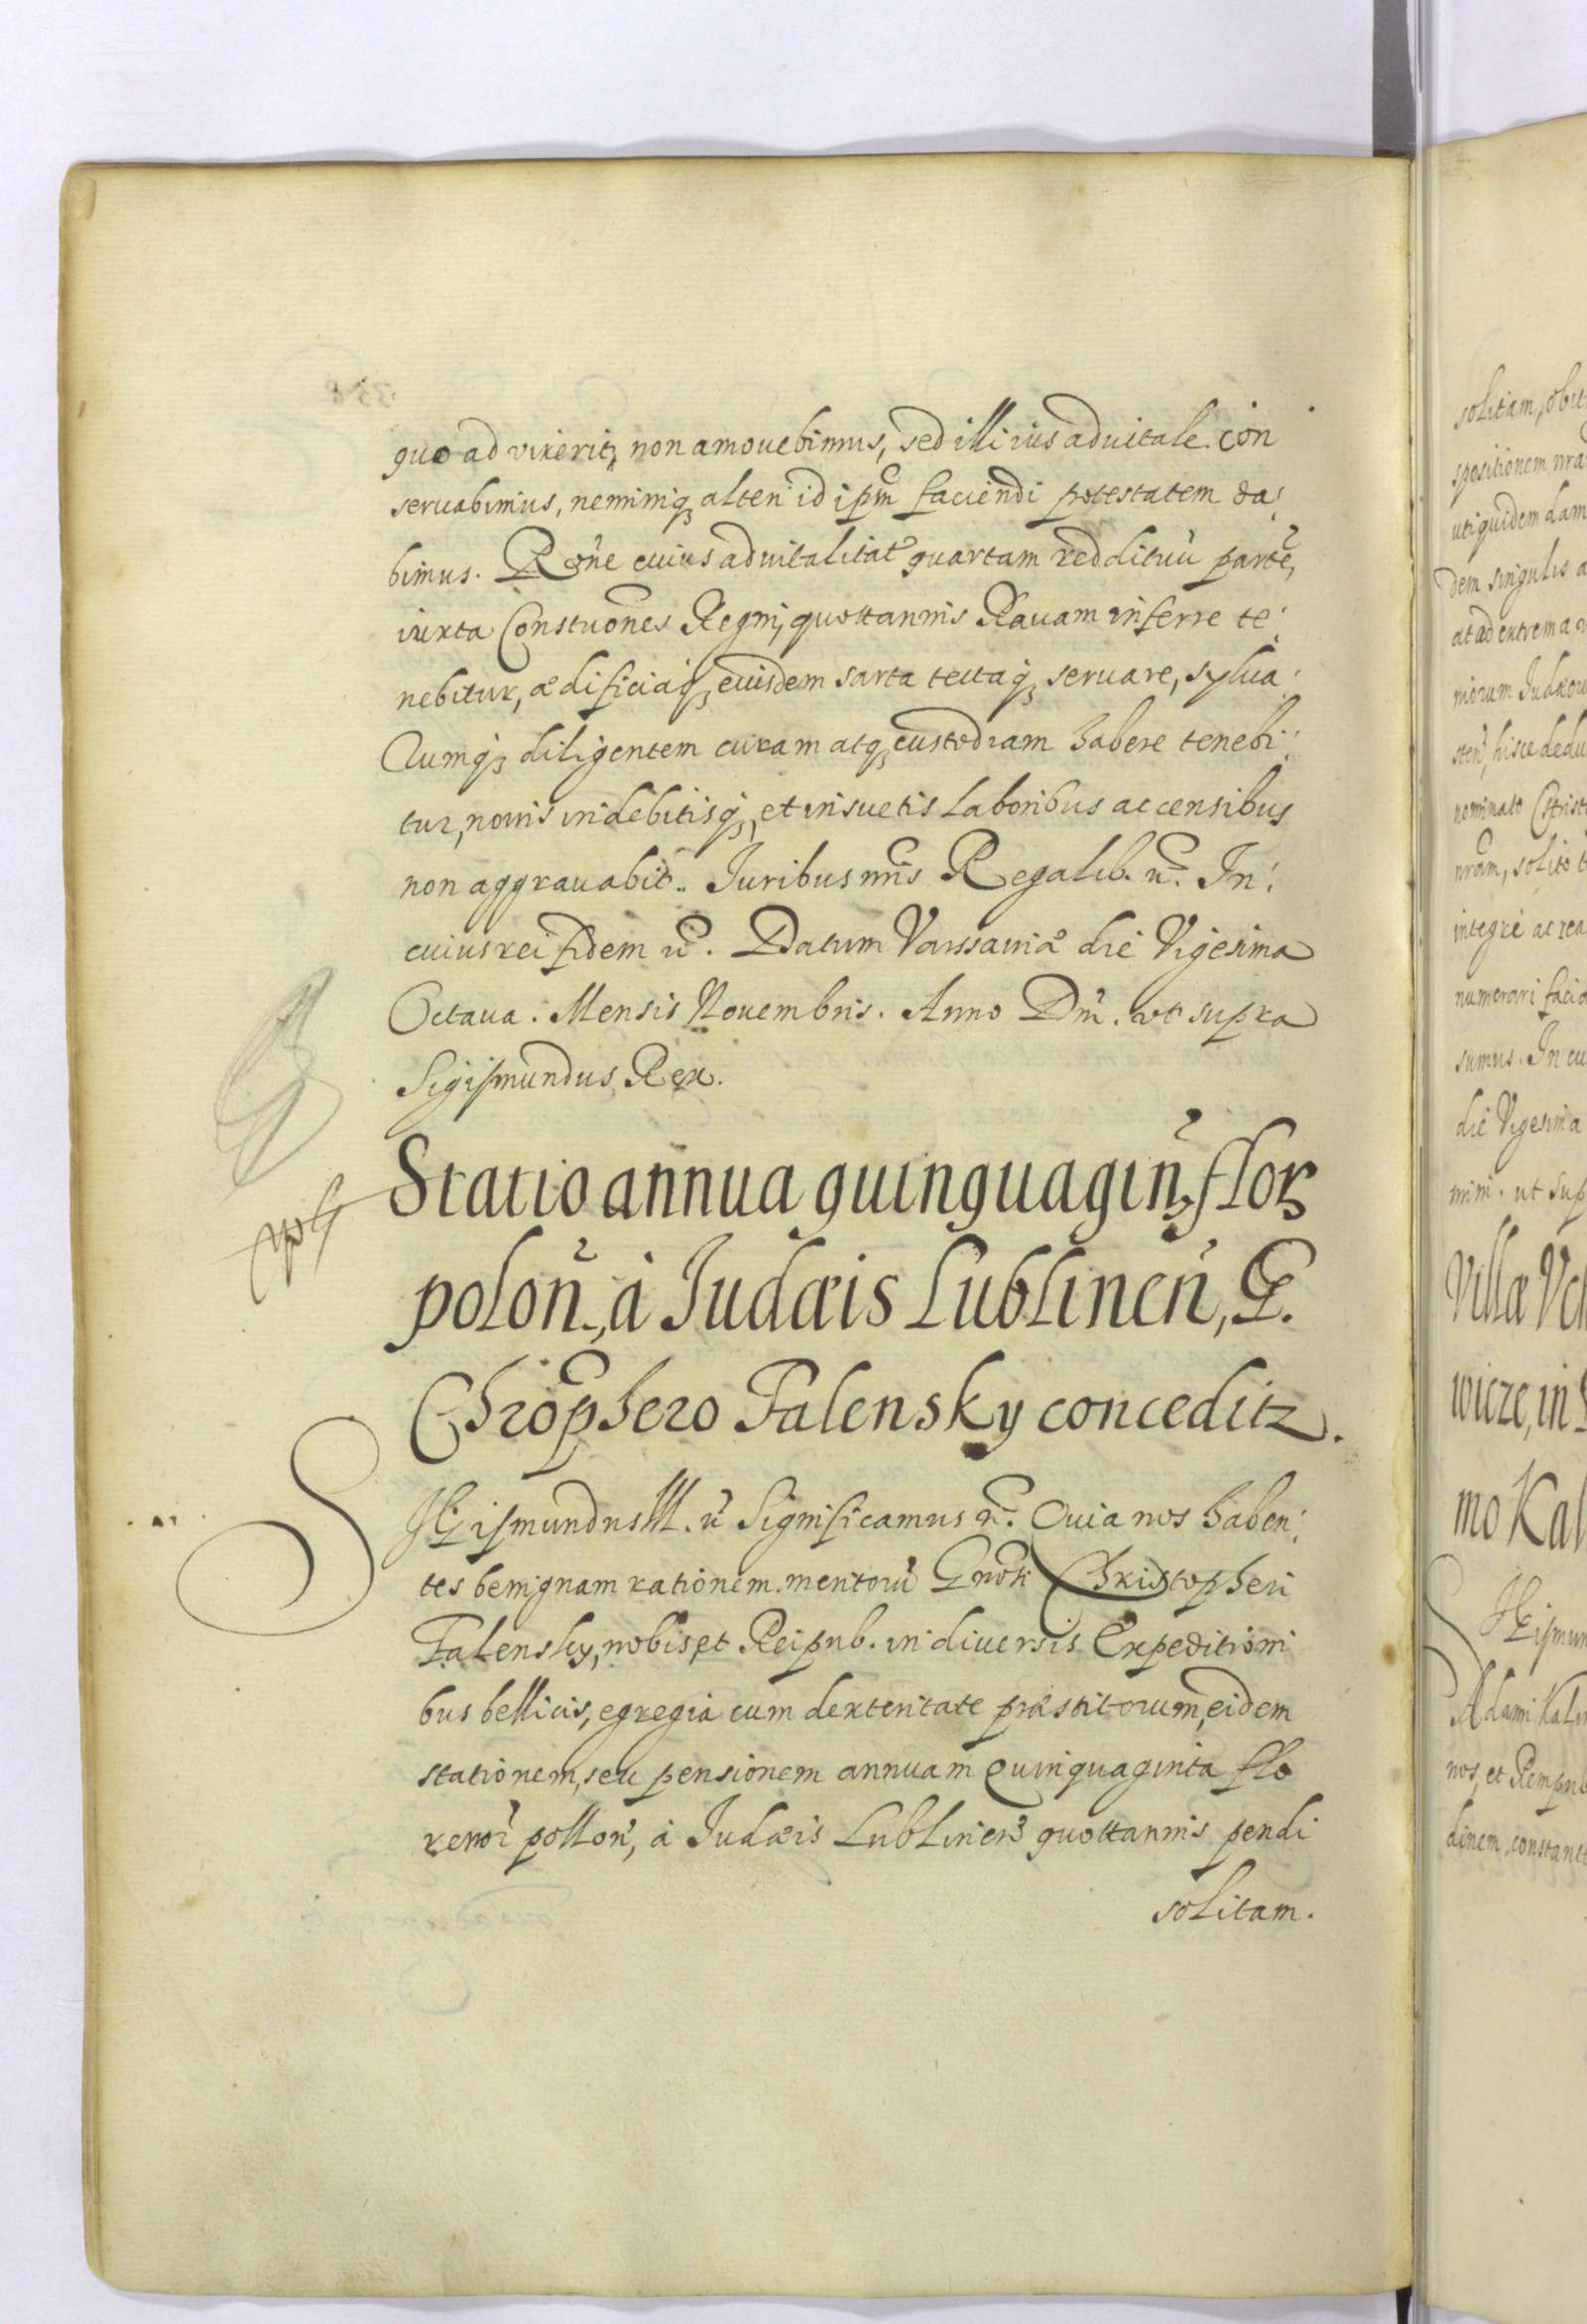 quo ad vixerit, non amouebimus, sed illi ius aduitale con
seruabimus, neminiq₃ alteri id ipm̃ faciendi potestatem da:
bimus. Rõne cuius aduitalitat quartam reddituũ partẽ,
iuxta Constuõnes Regni, quottannis Rauam inferre te:
nebitur, ædificiaq₃ eiusdem sarta tectaq₃ seruare, sylua:
rumq₃ diligentem curam atq₃ custodiam habere tenebi:
tur, nouis indebitisq₃, et insuetis laboribus ac censibus
non aggrauabit.. Juribus nris Regalib. rc. In:
cuius rei fidem rc. Datum Varssauiæ die Vigesima
Octaua. Mensis Nouembris. Anno Dni. vt supra
Sigismundus Rex.
Statio annua quinquagin, flor
polon, à Judæis Lublinen, G.
Chrõphero Falensky conceditr.
SIGismundus III. rc Significamus rc. Quia nos haben:
tes benignam rationem meritorũ Gnosi Christopheri
Falensky, nobis et Reipub. in diuersis Expeditioni
bus bellicis, egregia cum dexteritate præstitorum, eidem
stationem, seu pensionem annuam Quinquaginta flo
renor pollon, à Judæis Lublinen quottannis pendi
solitam.
solitam, obit
spositionem nra
utiquidem dam
dem singulis a
at ad extrema
niorum Judæor
sten, hisce dedu
nominato Christ
nram, solito t
integrè ac rea
numerari facia
sumus. In cu
die Vigesima
mini. ut sup
Villæ
wicze, in
mo Kal
SIGismun
Adami Kalin
nos, et Rempub
dinem, constant